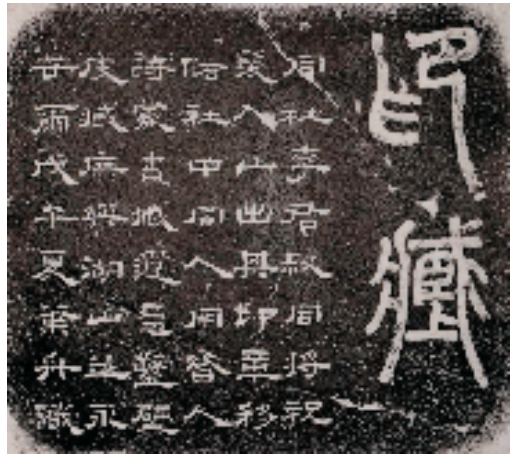 印藏
同社李君叔同將祝
髮入山出其印章移
儲社中同人用昔人
詩龕書藏遺意鑿壁
庋藏庶與湖山並永
云爾戊午夏葉舟識